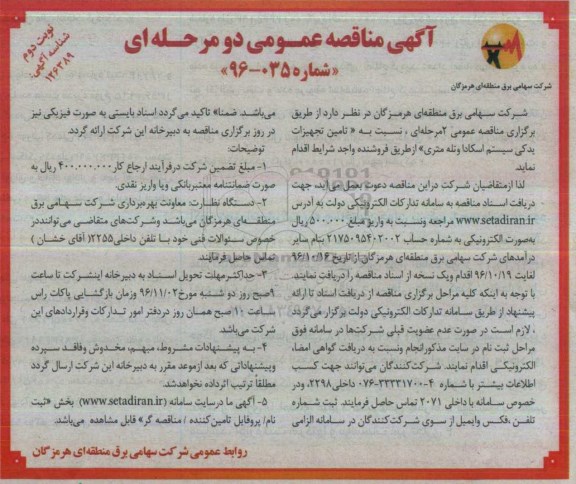 آگهی مناقصه عمومی دو مرحله ای
«شماره ۰۳۵-۹۶»
نوبت دوم
شناسه آگهی:
۱۲۶۳۸۹
شرکت سهامی برق منطقه‌ای هرمزگان
شرکت سهامی برق منطقه‌ای هرمزگان در نظر دارد از طریق
برگزاری مناقصه عمومی ۲مرحله‌ای ، نسبت به « تامین تجهیزات
یدکی سیستم اسکادا وتله متری» ازطریق فروشنده واجد شرایط اقدام
نماید.
لذا ازمتقاضیان شرکت دراین مناقصه دعوت بعمل می‌آید، جهت
دریافت اسناد مناقصه به سامانه تدارکات الکترونیکی دولت به آدرس
www.setadiran.ir مراجعه ونسبت به واریز مبلغ ۵۰۰.۰۰۰ ریال
به‌صورت الکترونیکی به شماره حساب ۲۱۷۵۰۹۵۴۰۲۰۰۲ بنام سایر
درآمدهای شرکت سهامی برق منطقه‌ای هرمزگان از تاریخ ۹۶/۱۰/۱۶
لغایت ۹۶/۱۰/۱۹ اقدام ویک نسخه از اسناد مناقصه را دریافت نمایند.
با توجه به اینکه کلیه مراحل برگزاری مناقصه از دریافت اسناد تا ارائه
پیشنهاد از طریق سامانه تدارکات الکترونیکی دولت برگزار می‌گردد
، لازم است در صورت عدم عضویت قبلی شرکت‌ها در سامانه فوق
مراحل ثبت نام در سایت مذکورانجام ونسبت به دریافت گواهی امضاء
الکترونیکی اقدام نمایند. شرکت‌کنندگان می‌توانند جهت کسب
اطلاعات بیشتر با شماره ۴-۳۳۳۳۱۷۰۰-۰۷۶ داخلی ۲۲۹۸، ودر
خصوص سامانه با داخلی ۲۰۷۱ تماس حاصل فرمایند. ثبت شماره
تلفن ،فکس وایمیل از سوی شرکت‌کنندگان در سامانه الزامی
می‌باشد. ضمنا" تاکید می‌گردد اسناد بایستی به صورت فیزیکی نیز
در روز برگزاری مناقصه به دبیرخانه این شرکت ارائه گردد.
توضیحات:
۱- مبلغ تضمین شرکت درفرآیند ارجاع کار ۴۰۰.۰۰۰.۰۰۰ ریال به
صورت ضمانتنامه معتبربانکی ویا واریز نقدی.
۲- دستگاه نظارت: معاونت بهره‌برداری شرکت سهامی برق
منطقه‌ای هرمزگان می‌باشد وشرکت‌های متقاضی می‌توانند در
خصوص سئوالات فنی خود با تلفن داخلی۲۲۵۵( آقای خشان )
تماس حاصل فرمایند.
۳-حداکثرمهلت تحویل اسناد به دبیرخانه اینشرکت تا ساعت
۹صبح روز دو شنبه مورخ۹۶/۱۱/۰۲ وزمان بازگشایی پاکات راس
ساعت ۱۰ صبح همان روز دردفتر امور تدارکات وقراردادهای این
شرکت می‌باشد.
۴- به پیشنهادات مشروط، مبهم، مخدوش وفاقد سپرده
وپیشنهاداتی که بعد ازموعد مقرر به دبیرخانه این شرکت ارسال گردد
مطلقاً ترتیب اثرداده نخواهدشد.
۵- آگهی ما درسایت سامانه (www.setadiran.ir) بخش «ثبت
نام/ پروفایل تامین کننده / مناقصه گر» قابل مشاهده می‌باشد.
روابط عمومی شرکت سهامی برق منطقه‌ای هرمزگان